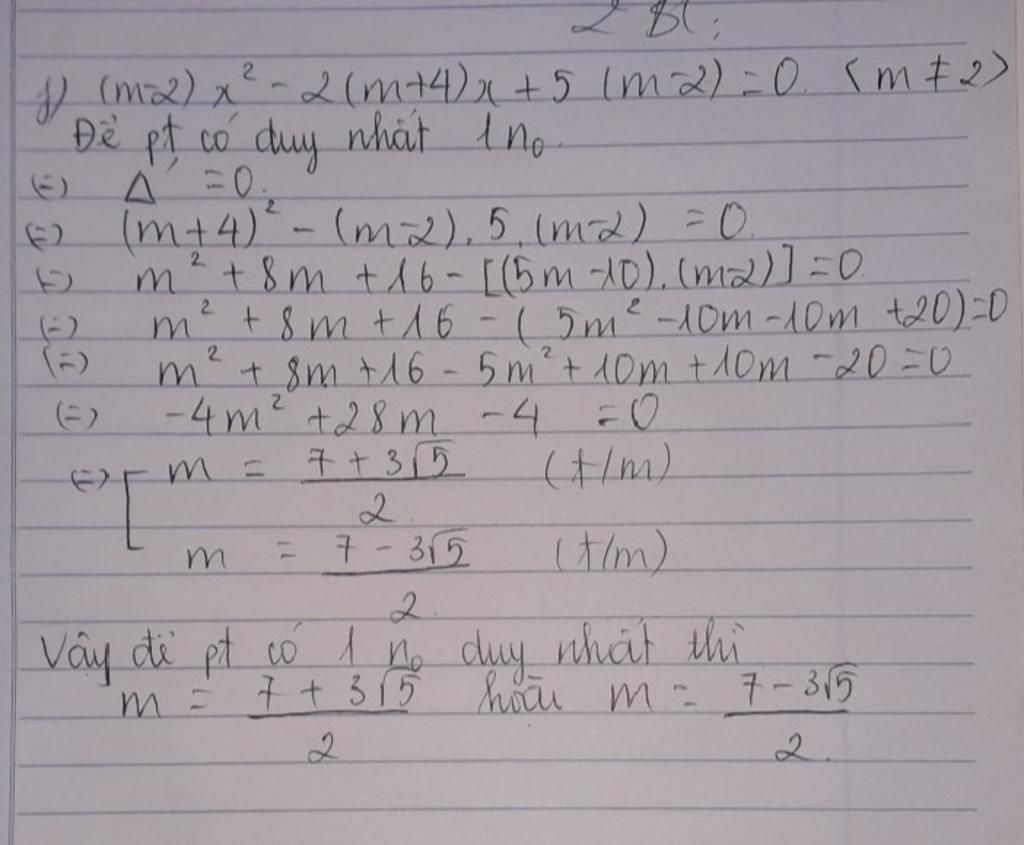 2 Bl;
f) (m-2)x² - 2(m+4)x + 5(m-2) = 0. <m ≠ 2>
Để pt có duy nhất 1 n₀.
(=) Δ' = 0.
(=) (m+4)² - (m-2).5.(m-2) = 0.
(=) m² + 8m + 16 - [(5m-10).(m-2)] = 0.
(=) m² + 8m + 16 - (5m² - 10m - 10m + 20) = 0
(=) m² + 8m + 16 - 5m² + 10m + 10m - 20 = 0
(=) -4m² + 28m - 4 = 0
(=) [ m = (7 + 3√5)/2 (t/m)
m = (7 - 3√5)/2 (t/m)
Vậy để pt có 1 n₀ duy nhất thì
m = (7 + 3√5)/2 hoặc m = (7 - 3√5)/2.